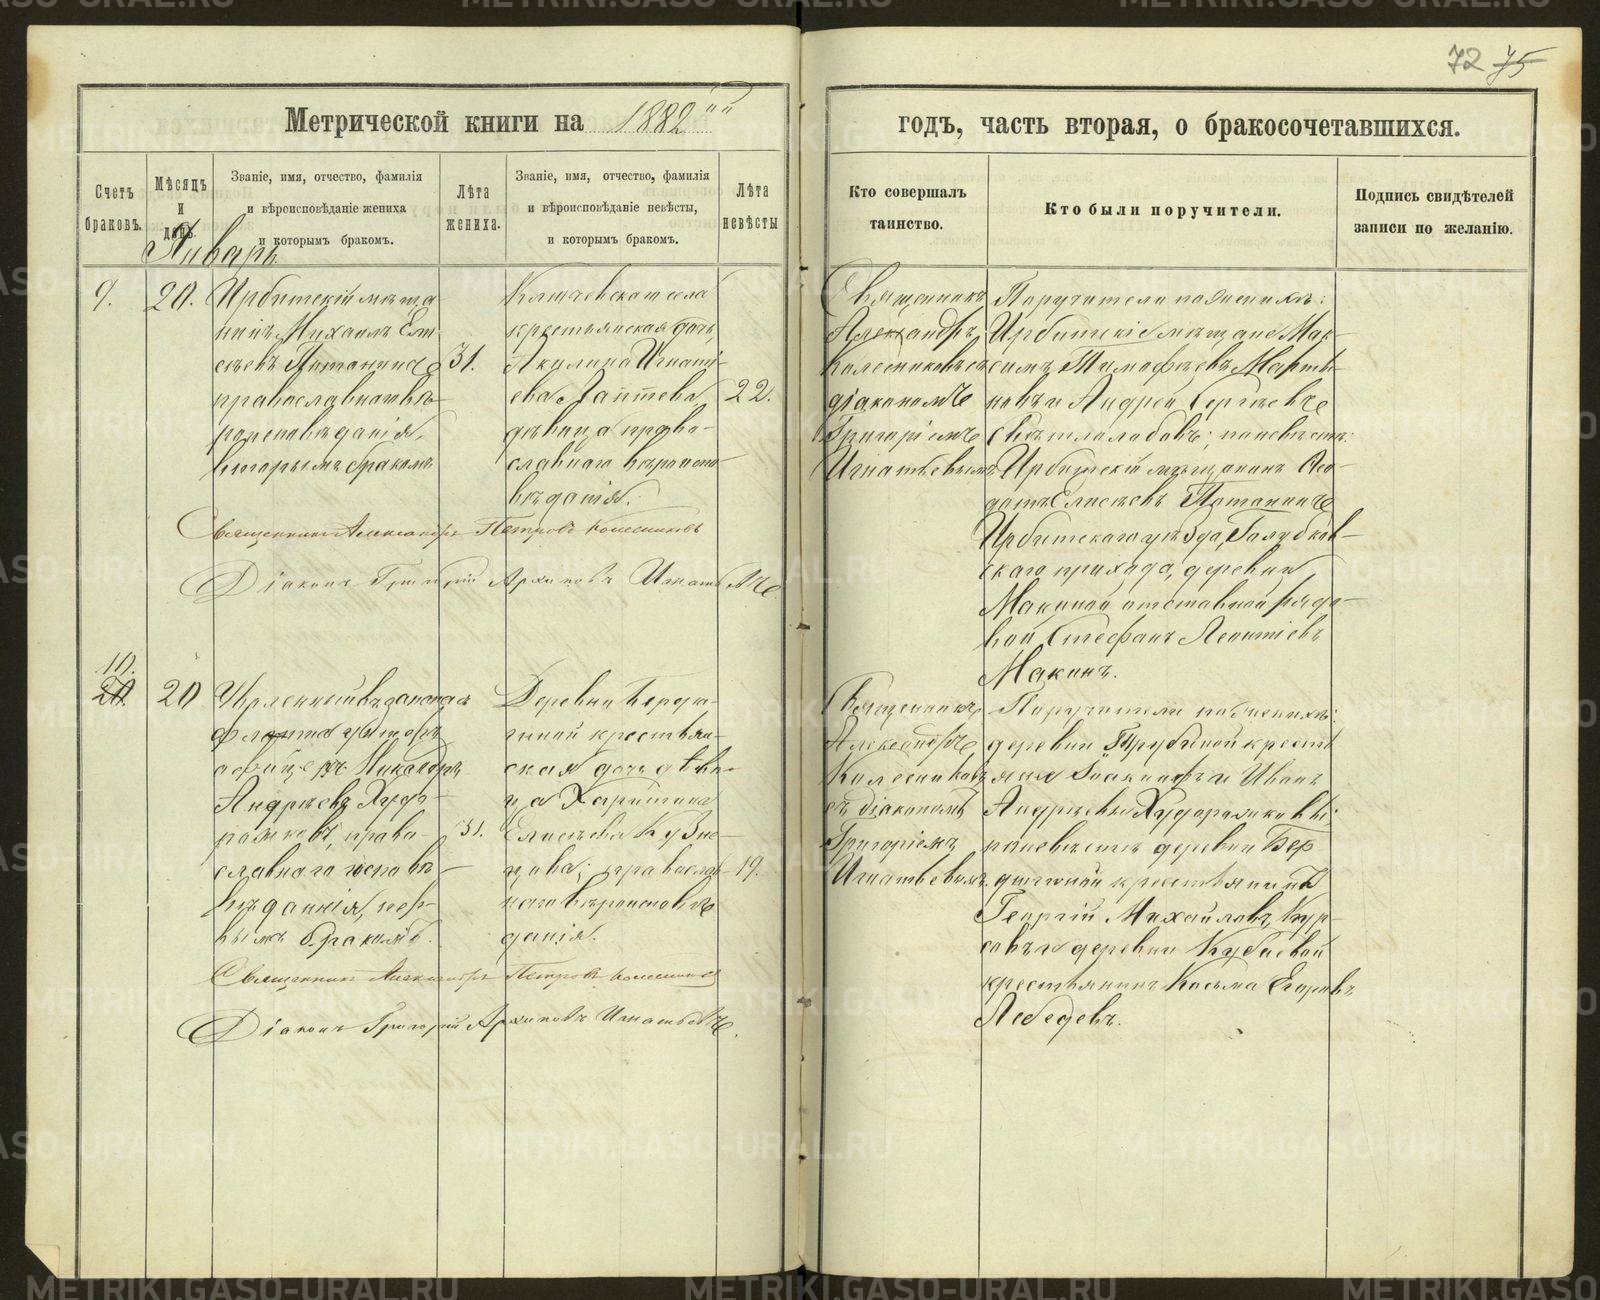 72 75
Метрической книги на 1882
годъ, часть вторая, о бракосочетавшихся.
Счетъ браковъ.
Мѣсяцъ и день.
Званіе, имя, отчество, фамилія
и вѣроисповѣданіе жениха
и которымъ бракомъ.
Лѣта жениха.
Званіе, имя, отчество, фамилія
и вѣроисповѣданіе невѣсты,
и которымъ бракомъ.
Лѣта невѣсты
Кто совершалъ
таинство.
Кто были поручители.
Подпись свидѣтелей
записи по желанію.
Январь
9.
20.
Ирбитскій мѣща
нинъ Михаилъ Ели-
сѣевъ Потанинъ
православнаго вѣ-
роисповѣданія,
вторымъ бракомъ
31.
крестьянская дочь,
Акулина Игнатi-
ева Лаптева,
дѣвица право-
славнаго вѣроиспо
вѣданія.
22.
Священникъ
Александръ
Колесниковъ съ
діакономъ
Григоріемъ
Игнатьевымъ
Поручители по женихѣ:
Ирбитскіе мѣщане Мак-
симъ Тимофѣевъ Марты-
новъ и Андрей Сергѣевъ
Свѣтлолобовъ; по невѣстѣ:
Ирбитскій мѣщанинъ Ѳео-
дотъ Елисѣевъ Потанинъ
Ирбитскаго уѣзда, Голубков-
скаго прихода, деревни
Макиной отставной рядо-
вой Стефанъ Леонтіевъ
Макинъ.
Священникъ Александръ Петровъ Колесниковъ
Діаконъ Григорій Архиповъ Игнатьевъ
10.
20
20
Уволенный въ запасъ
унтеръ
офицеръ Никаноръ
Андрѣевъ Худо-
рожковъ, право-
славнаго исповѣ-
даннія, пер-
вымъ бракомъ.
31.
Деревни Бердю-
гиной крестьян-
ская дочь дѣви-
ца Харитина
Елисѣева Кузне-
цова; православ-
наго вѣроисповѣ
данія.
19.
Священникъ
Александръ
Колесниковъ
съ діакономъ
Григоріемъ
Игнатьевымъ.
Поручители по женихѣ:
деревни Трубиной кресть
яне Іоакимъ и Иванъ
Андрѣевы Худорожковы;
по невѣстѣ деревни Бер
дюгиной крестьянинъ
Георгій Михайловъ Кур-
совъ и деревни Кубаевой
крестьянинъ Косьма Егоровъ
Лебедевъ.
Священникъ Александръ Петровъ Колесниковъ
Діаконъ Григорій Архиповъ Игнатьевъ.
METRIKI.GASO-URAL.RU